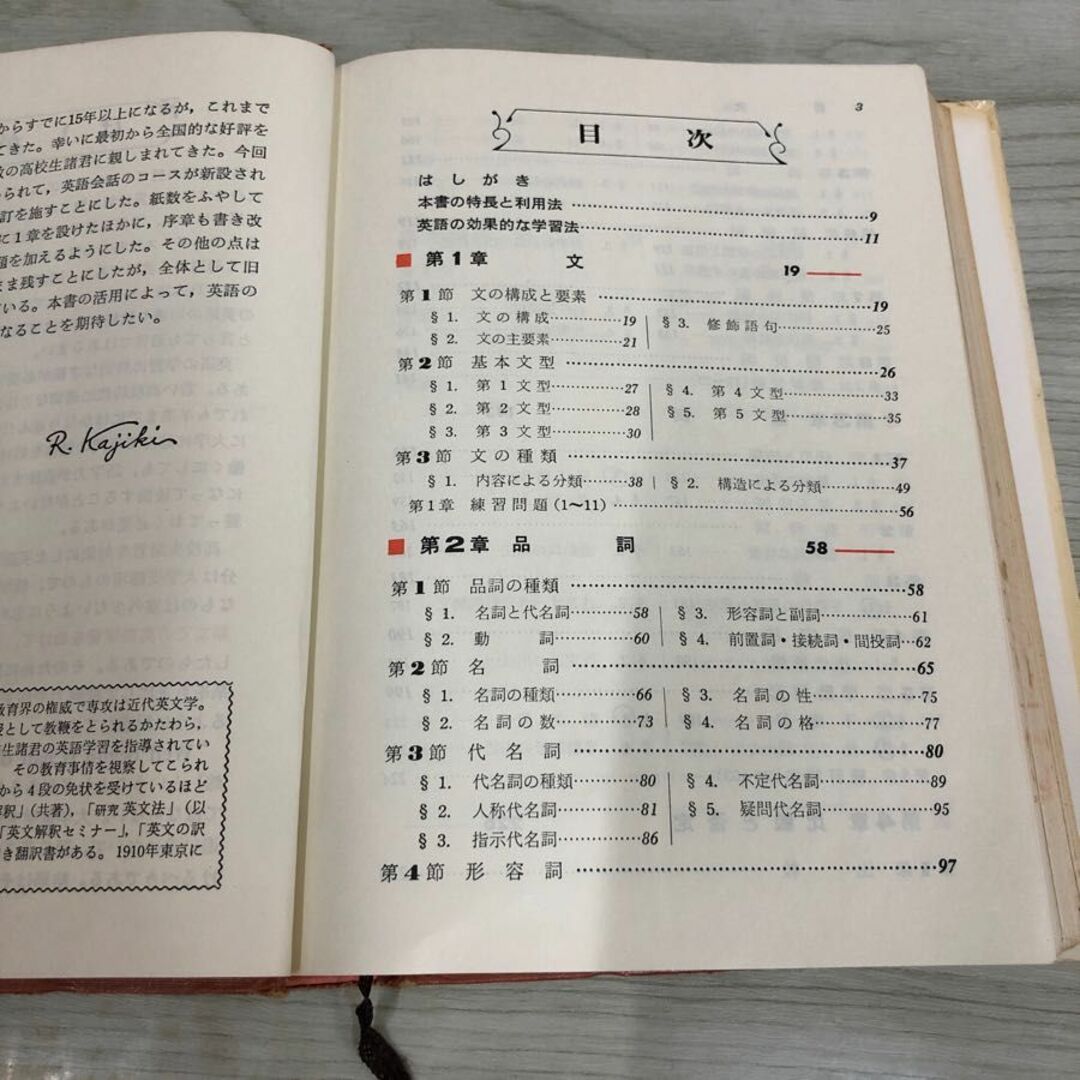 からすでに15年以上になるが，これまで
てきた。幸いに最初から全国的な好評を
数の高校生諸君に親しまれてきた。今回
られて，英語会話のコースが新設され
訂を施すことにした。紙数をふやして
に1章を設けたほかに，序章も書き改
題を加えるようにした。その他の点は
まま残すことにしたが，全体として旧
ている。本書の活用によって，英語の
なることを期待したい。
R. Kajiki
教育界の権威で専攻は近代英文学。
授として教鞭をとられるかたわら，
生諸君の英語学習を指導されてい
その教育事情を視察してこられ
から4段の免状を受けているほど
解釈」（共著），「研究 英文法」（以
「英文解釈セミナー」，「英文の訳
き翻訳書がある。1910年東京に
3
目次
はしがき
本書の特長と利用法…………9
英語の効果的な学習法…………11
■ 第1章 文 19
第1節 文の構成と要素…………19
§1. 文の構成…………19
§2. 文の主要素…………21
§3. 修飾語句…………25
第2節 基本文型…………26
§1. 第1文型…………27
§2. 第2文型…………28
§3. 第3文型…………30
§4. 第4文型…………33
§5. 第5文型…………35
第3節 文の種類…………37
§1. 内容による分類…………38
§2. 構造による分類…………49
第1章 練習問題（1〜11）…………56
■ 第2章 品詞 58
第1節 品詞の種類…………58
§1. 名詞と代名詞…………58
§2. 動詞…………60
§3. 形容詞と副詞…………61
§4. 前置詞・接続詞・間投詞…62
第2節 名詞…………65
§1. 名詞の種類…………66
§2. 名詞の数…………73
§3. 名詞の性…………75
§4. 名詞の格…………77
第3節 代名詞…………80
§1. 代名詞の種類…………80
§2. 人称代名詞…………81
§3. 指示代名詞…………86
§4. 不定代名詞…………89
§5. 疑問代名詞…………95
第4節 形容詞…………97